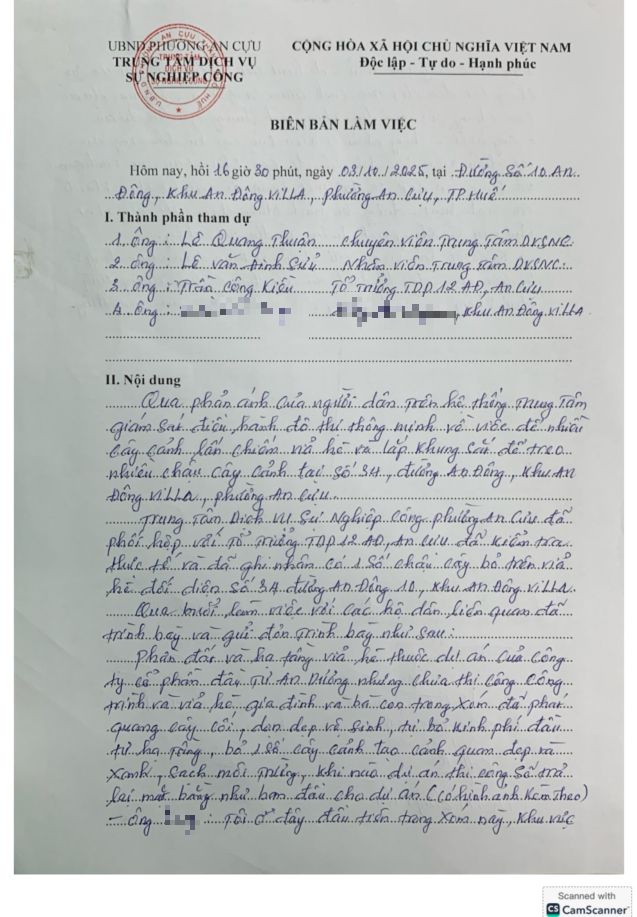 UBND PHƯỜNG AN CỰU
TRUNG TÂM DỊCH VỤ
SỰ NGHIỆP CÔNG
CỘNG HÒA XÃ HỘI CHỦ NGHĨA VIỆT NAM
Độc lập - Tự do - Hạnh phúc
BIÊN BẢN LÀM VIỆC
Hôm nay, hồi 16 giờ 30 phút, ngày 03/10/2025, tại Đường Số 10 An
Đông, Khu An Đông ViLLA, phường An Cựu, TP Huế
I. Thành phần tham dự
1. Ông: Lê Quang Thuận chuyên viên Trung Tâm DVSNC
2. Ông: Lê Văn Đình Sửu Nhân viên Trung tâm DVSNC
3. Ông: Trần Công Kiệu Tổ trưởng TDP 12 AĐ, An Cựu
4. Ông: , Khu An Đông ViLLA
II. Nội dung
Qua phản ánh của người dân trên hệ thống Trung Tâm
giám sát điều hành đô thị thông minh về việc để nhiều
cây cảnh lấn chiếm vỉa hè và lắp Khung Sắt để treo
nhiều chậu cây cảnh tại Số 34, đường An Đông, Khu An
Đông ViLLA, phường An Cựu.
Trung Tâm Dịch Vụ Sự Nghiệp Công phường An Cựu đã
phối hợp với Tổ trưởng TDP 12 AĐ, An Cựu đã Kiểm tra
thực tế và đã ghi nhận có 1 Số chậu cây bỏ trên vỉa
hè đối diện Số 34 đường An Đông 10, Khu An Đông ViLLA.
Qua buổi làm việc với các hộ dân liên quan đã
trình bày và gửi đơn trình bày như sau:
Phần đất và hạ tầng vỉa hè thuộc dự án của Công
ty cổ phần đầu tư An Dương nhưng chưa thi công công
trình và vỉa hè, gia đình và bà con trong xóm đã phát
quang cây cối, dọn dẹp vệ sinh, tự bỏ Kinh phí đầu
tư hạ tầng, bỏ 1 Số cây cảnh tạo cảnh quan đẹp và
xanh, sạch môi trường, khi nào dự án thi công Sẽ trả
lại mặt bằng như ban đầu cho dự án (có hình ảnh Kèm theo)
- Ông : Tôi ở đây đầu tiên trong xóm này, Khu vực
Scanned with
CS CamScanner